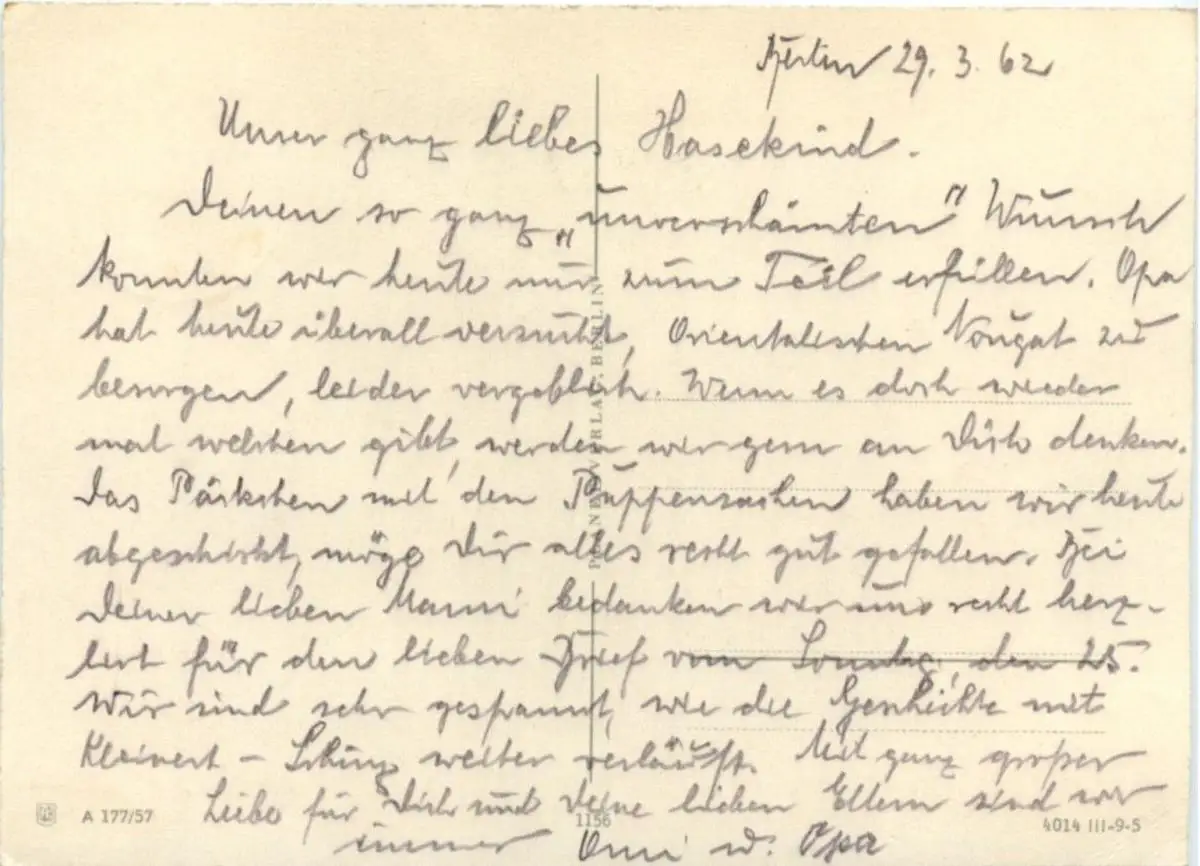 Berlin 29. 3. 62
Unser ganz liebes Hasekind.
Deinen so ganz „unverschämten" Wunsch
konnten wir heute nur zum Teil erfüllen. Opa
hat heute überall versucht, Orientalischen Nougat zu
besorgen, leider vergeblich. Wenn es doch wieder
mal welchen gibt, werden wir gern an Dich denken.
Das Päckchen mit den Puppensachen haben wir heute
abgeschickt, möge Dir alles recht gut gefallen. Bei
Deiner lieben Mami bedanken wir uns recht herz-
lich für den lieben Brief vom Sonntag, den 25.
Wir sind sehr gespannt, wie die Geschichte mit
Kleinert - weiter verläuft. Mit ganz großer
Liebe für Dich und Deine lieben Eltern sind wir
immer Omi u. Opa
PLANET-VERLAG, BERLIN
A 177/57
1156
4014 III-9-5